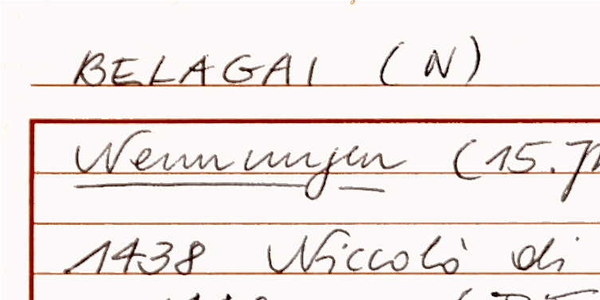 BELAGAI (N)
Nennungen (15.
1438 Niccolò di